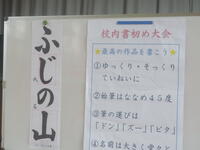 ふじの山
校内書初め大会
★最高の作品を書こう★
①ゆっくり・そっくり
ていねいに
②始筆はななめ45度
③筆の運びは
「ドン」「ズー」「ピタ」
④名前は大きく堂々と